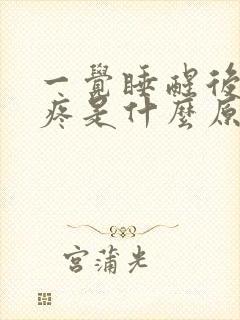 一覺睡醒後
疼是什麼原
宮蒲光